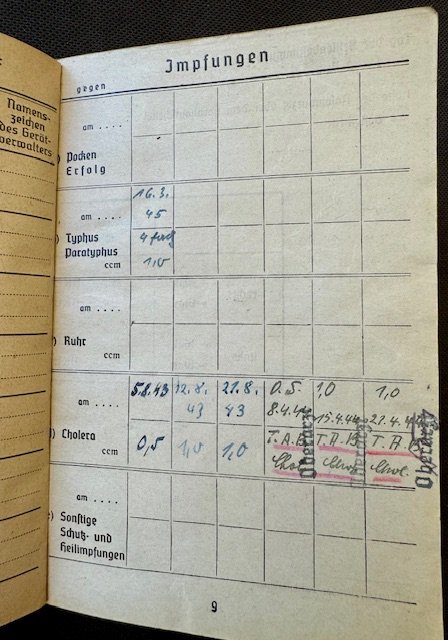 Namens-
zeichen
des Gerät-
verwalters
Impfungen
gegen
am . . . .
) Pocken
Erfolg
16. 3.
am . . . .
45
) Typhus
4 fach
Paratyphus
ccm
1,0
am . . . .
) Ruhr
ccm
5.8.43 12.8. 21.8. 0.5 1,0 1,0
am . . . .
43 43 8.4.44 15.4.44 21.4.4
) Cholera
T.A.B. T.A.B. T.A.B.
ccm
0,5 1,0 1,0 Chol. Chol. Chol.
Oberarzt Oberarzt Oberarzt
am . . . .
) Sonstige
Schutz- und
Heilimpfungen
9